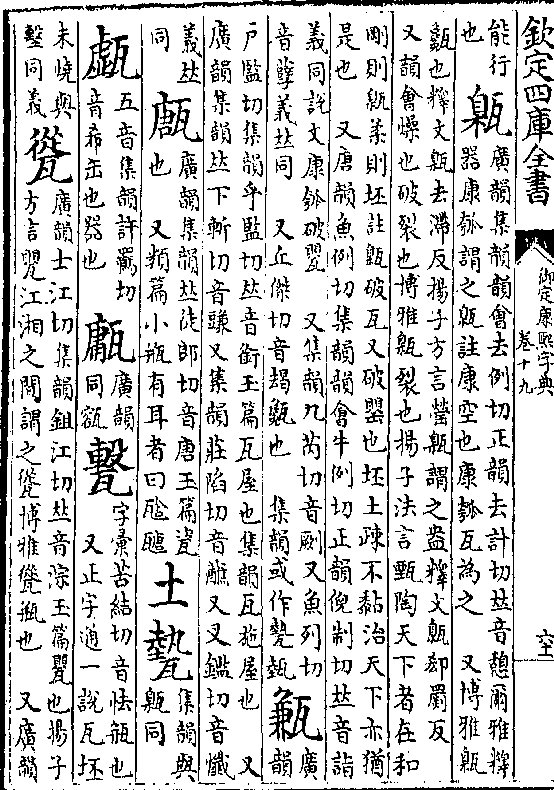 欽定四庫全書
御定康熙字典
卷十九
能行也
甈
廣韻集韻韻會去例切正韻去計切𠀤音憩爾雅釋器康瓠謂之甈註康空也康瓠瓦為之 又博雅甈
甈也釋文甈去滯反揚子方言罃甈謂之盎釋文甈郤罽反
又韻會燥也破裂也博雅甈裂也揚子法言甄陶天下者在和
剛則甈柔則坯註甈破瓦又破罌也坯土疎不黏治天下亦猶
是也 又唐韻魚例切集韻韻會牛例切正韻倪制切𠀤音詣
義同說文康瓠破罌 又集韻九芮切音劂又魚列切
音孽義𠀤同 又丘傑切音朅甈也 集韻或作㙯㼤
㼓
廣韻
戸監切集韻乎監切𠀤音銜玉篇瓦屋也集韻瓦施屋也 又
廣韻集韻𠀤下斬切音豏又集韻莊陷切音蘸又叉鑑切音懺
義𠀤同
㼺
廣韻集韻𠀤徒郎切音唐玉篇瓷也 又類篇小瓶有耳者曰㼺㼾
土㙯
集韻與甈同
甗
五音集韻許羈切音希缶也器也
廣韻同甋
㼤
字彙苦結切音怯瓶也 又正字通一說瓦坯
未燒與墼同義
㼻
廣韻士江切集韻鉏江切𠀤音淙玉篇罌也揚子
方言罌江湘之間謂之㼻博雅㼻瓶也 又廣韻